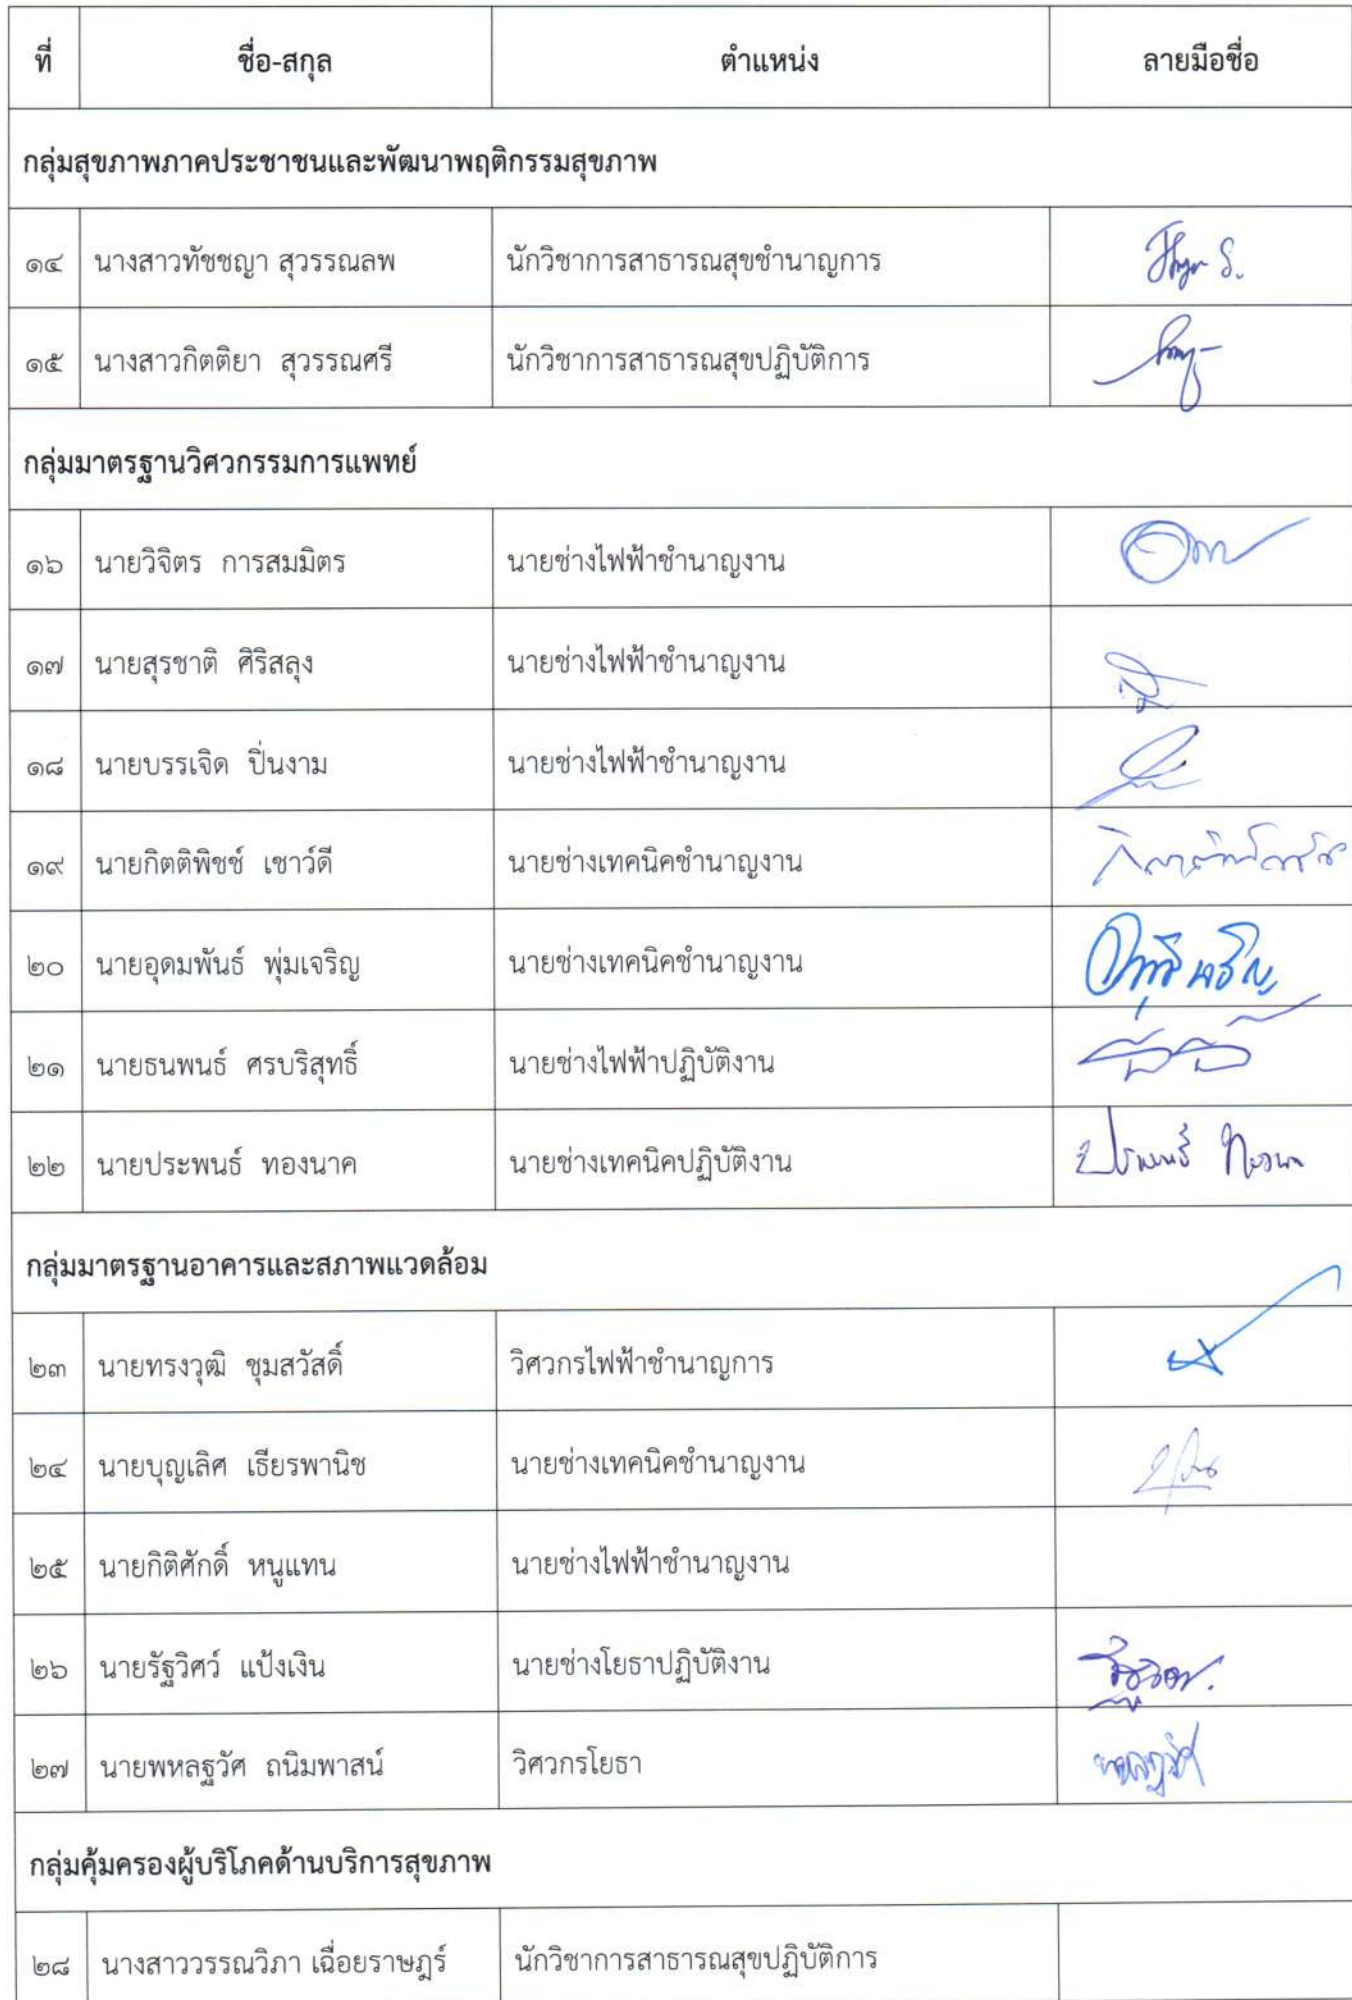 ที่ ชื่อ-สกุล ตำแหน่ง ลายมือชื่อ
กลุ่มสุขภาพภาคประชาชนและพัฒนาพฤติกรรมสุขภาพ
๑๔ นางสาวทัชชญา สุวรรณลพ นักวิชาการสาธารณสุขชำนาญการ
๑๕ นางสาวกิตติยา สุวรรณศรี นักวิชาการสาธารณสุขปฏิบัติการ
กลุ่มมาตรฐานวิศวกรรมการแพทย์
๑๖ นายวิจิตร การสมมิตร นายช่างไฟฟ้าชำนาญงาน
๑๗ นายสุรชาติ ศิริสลุง นายช่างไฟฟ้าชำนาญงาน
๑๘ นายบรรเจิด ปิ่นงาม นายช่างไฟฟ้าชำนาญงาน
๑๙ นายกิตติพิชช์ เชาว์ดี นายช่างเทคนิคชำนาญงาน
๒๐ นายอุดมพันธ์ พุ่มเจริญ นายช่างเทคนิคชำนาญงาน
๒๑ นายธนพนธ์ ศรบริสุทธิ์ นายช่างไฟฟ้าปฏิบัติงาน
๒๒ นายประพนธ์ ทองนาค นายช่างเทคนิคปฏิบัติงาน
กลุ่มมาตรฐานอาคารและสภาพแวดล้อม
๒๓ นายทรงวุฒิ ชุมสวัสดิ์ วิศวกรไฟฟ้าชำนาญการ
๒๔ นายบุญเลิศ เธียรพานิช นายช่างเทคนิคชำนาญงาน
๒๕ นายกิติศักดิ์ หนูแทน นายช่างไฟฟ้าชำนาญงาน
๒๖ นายรัฐวิศว์ แป้งเงิน นายช่างโยธาปฏิบัติงาน
๒๗ นายพหลฐวัศ ถนิมพาสน์ วิศวกรโยธา
กลุ่มคุ้มครองผู้บริโภคด้านบริการสุขภาพ
๒๘ นางสาววรรณวิภา เฉื่อยราษฎร์ นักวิชาการสาธารณสุขปฏิบัติการ